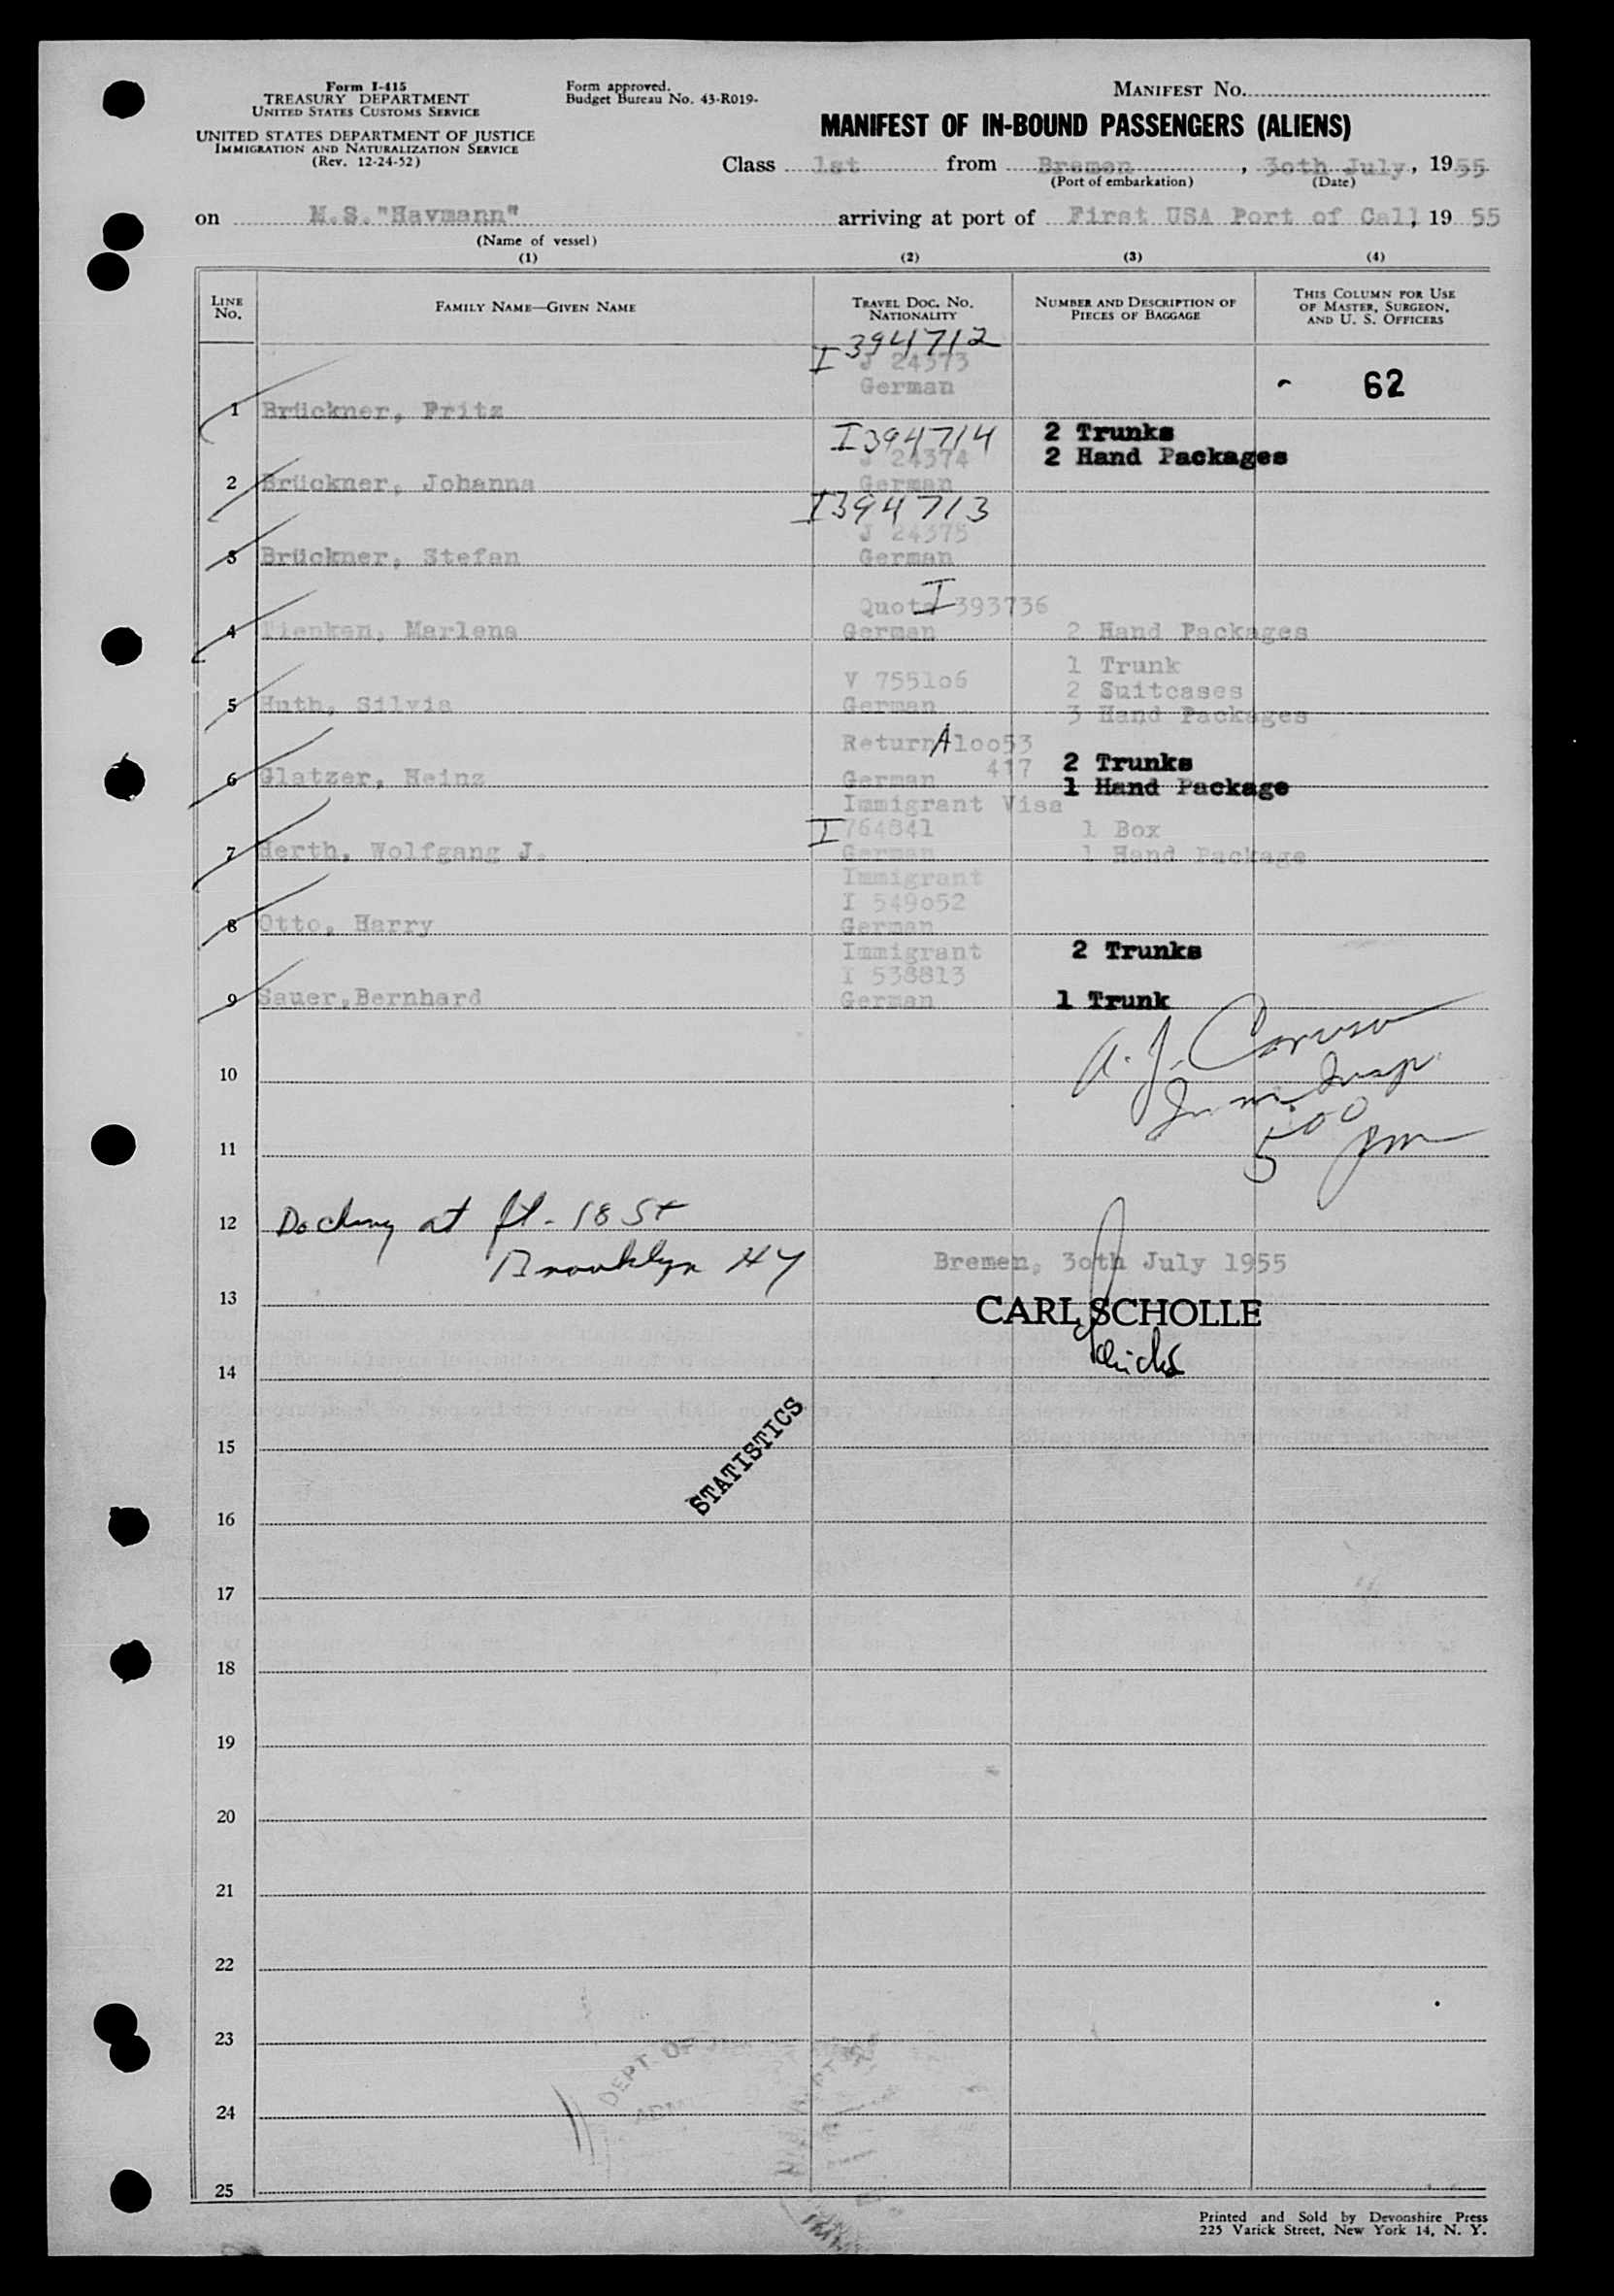 Form I-415
TREASURY DEPARTMENT
UNITED STATES CUSTOMS SERVICE
UNITED STATES DEPARTMENT OF JUSTICE
IMMIGRATION AND NATURALIZATION SERVICE
(Rev. 12-24-52)
Form approved.
Budget Bureau No. 43-R019-
MANIFEST No.
MANIFEST OF IN-BOUND PASSENGERS (ALIENS)
Class 1st from Bremen, 3oth July, 1955
(Port of embarkation) (Date)
on M.S."Havmann" arriving at port of First USA Port of Call, 19 55
(Name of vessel)
(1) (2) (3) (4)
LINE No. FAMILY NAME—GIVEN NAME TRAVEL DOC. NO. NATIONALITY NUMBER AND DESCRIPTION OF PIECES OF BAGGAGE THIS COLUMN FOR USE OF MASTER, SURGEON, AND U. S. OFFICERS
I 394712
J 24373
German 62
1 Brückner, Fritz
I394714 2 Trunks
J 24374 2 Hand Packages
2 Brückner, Johanna German
I394713
J 24375
3 Brückner, Stefan German
Quota I 393736
4 Tienken, Marlena German 2 Hand Packages
1 Trunk
V 7551o6 2 Suitcases
5 Huth, Silvia German 3 Hand Packages
Return A1oo53
417 2 Trunks
6 Glatzer, Heinz German 1 Hand Package
Immigrant Visa
I 764841 1 Box
7 Herth, Wolfgang J. German 1 Hand Package
Immigrant
I 549o52
8 Otto, Harry German
Immigrant 2 Trunks
I 538813
9 Sauer,Bernhard German 1 Trunk
A. J. Caruso
10 Imm. Insp
500 pm
11
12 Docking at ft. 18 St
Brooklyn NY
Bremen, 3oth July 1955
13 CARL SCHOLLE
14
STATISTICS
15
16
17
18
19
20
21
22
23
DEPT. OF
24
25
Printed and Sold by Devonshire Press
225 Varick Street, New York 14, N. Y.